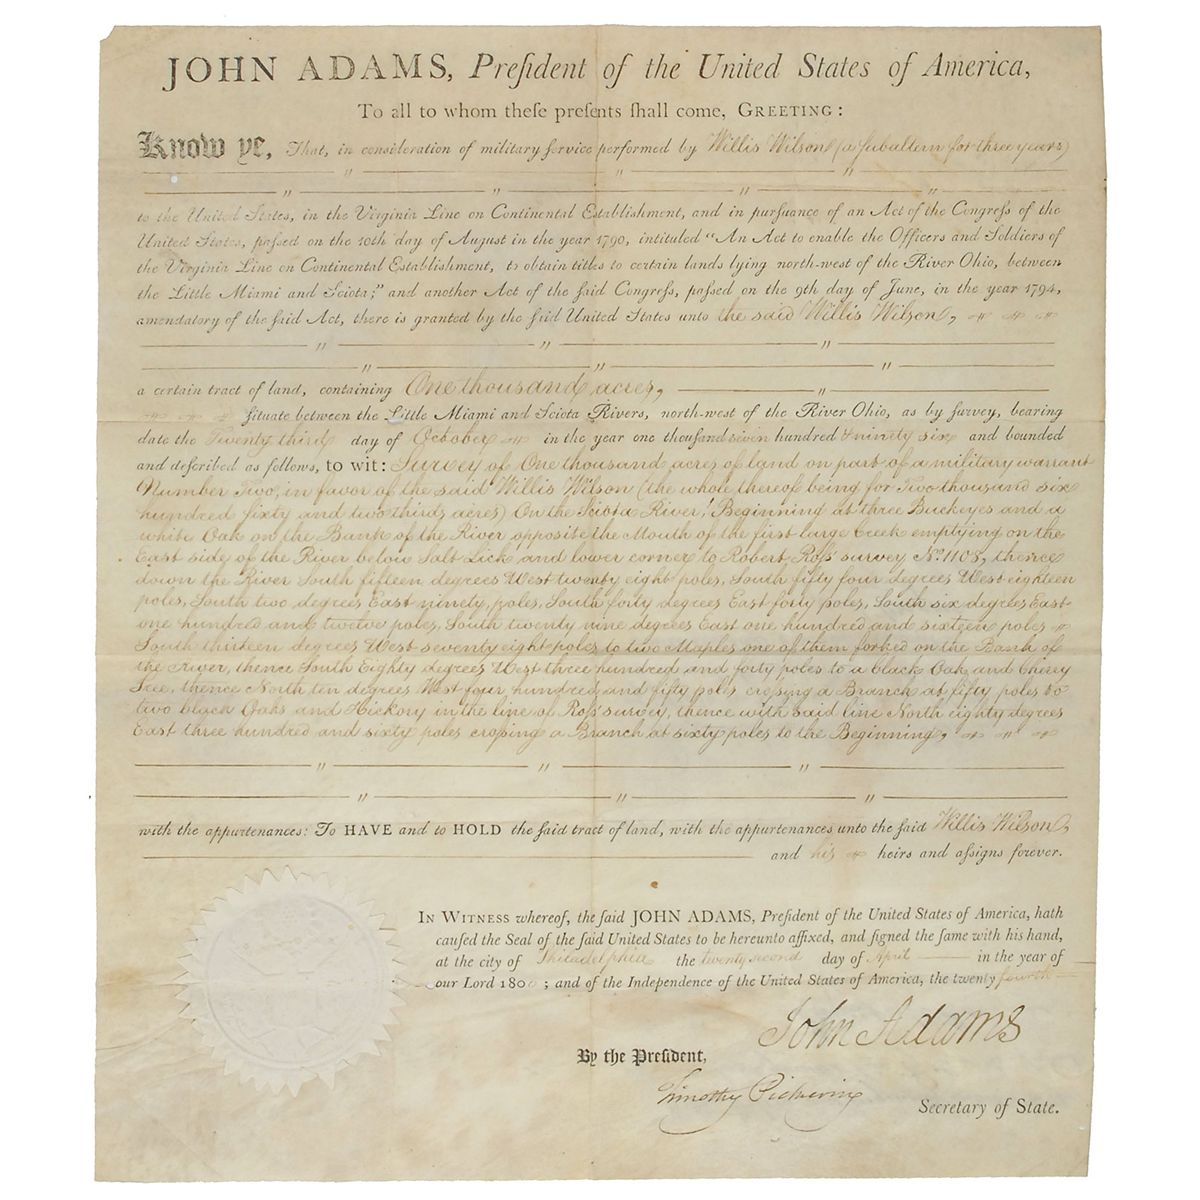 JOHN ADAMS, Preſident of the United States of America,
To all to whom theſe preſents ſhall come, GREETING:
Know ye, That, in conſideration of military ſervice performed by Willis Wilson (a ſubaltern for three years)
to the United States, in the Virginia Line on Continental Eſtabliſhment, and in purſuance of an Act of the Congreſs of the
United States, paſſed on the 10th day of Auguſt in the year 1790, intituled "An Act to enable the Officers and Soldiers of
the Virginia Line on Continental Eſtabliſhment, to obtain titles to certain lands lying north-weſt of the River Ohio, between
the Little Miami and Sciota;" and another Act of the ſaid Congreſs, paſſed on the 9th day of June, in the year 1794,
amendatory of the ſaid Act, there is granted by the ſaid United States unto the said Willis Wilson,
a certain tract of land, containing One thousand acres,
ſituate between the Little Miami and Sciota Rivers, north-weſt of the River Ohio, as by ſurvey, bearing
date the Twenty third day of October in the year one thouſand seven hundred & ninety six and bounded
and deſcribed as follows, to wit: Survey of One thousand acres of land on part of a military warrant
Number Two, in favor of the said Willis Wilson (the whole thereof being for Two thousand six
hundred sixty and two thirds acres) On the Sciota River, Beginning at three Buckeyes and a
white Oak on the Bank of the River opposite the Mouth of the first large Creek emptying on the
East side of the River below Salt Lick and lower corner to Robert Roſs' survey No. 1108, thence
down the River South fifteen degrees West twenty eight poles, South fifty four degrees West eighteen
poles, South two degrees East ninety poles, South forty degrees East forty poles, South six degrees East
one hundred and twelve poles, South twenty nine degrees East one hundred and sixteen poles
South thirteen degrees West seventy eight poles to two Maples one of them forked on the Bank of
the River, thence South Eighty degrees West three hundred and forty poles to a black Oak and Cherry
Tree, thence North ten degrees West four hundred and fifty poles croſsing a Branch at fifty poles to
two black Oaks and Hickory in the line of Roſs' survey, thence with said line North eighty degrees
East three hundred and sixty poles croſsing a Branch at sixty poles to the Beginning,
with the appurtenances: To HAVE and to HOLD the ſaid tract of land, with the appurtenances unto the ſaid Willis Wilson,
and his heirs and aſſigns forever.
IN WITNESS whereof, the ſaid JOHN ADAMS, Preſident of the United States of America, hath
cauſed the Seal of the ſaid United States to be hereunto affixed, and ſigned the ſame with his hand,
at the city of Philadelphia the twenty second day of April in the year of
our Lord 1800; and of the Independence of the United States of America, the twenty fourth
John Adams
By the Preſident,
Timothy Pickering
Secretary of State.